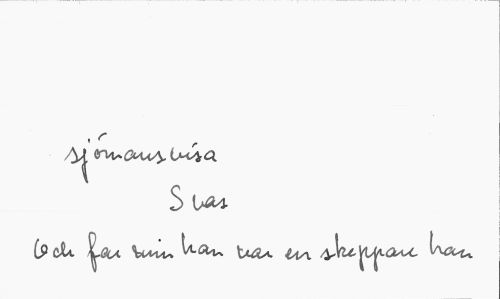 sjömansvisa
Svas
Och far min han var en skeppare han